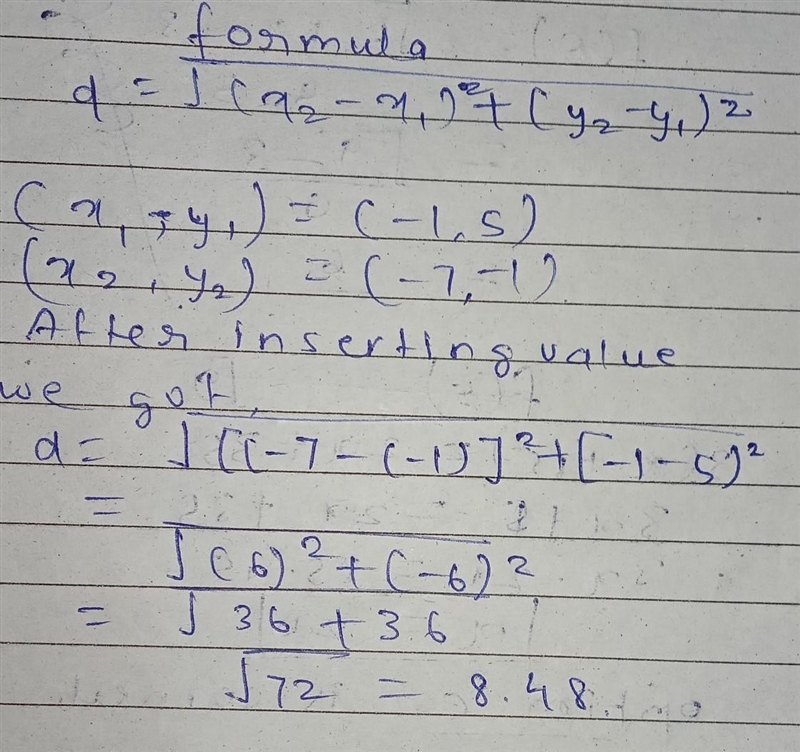 formula
d = √(x₂ - x₁)² + (y₂ - y₁)²
(x₁, y₁) = (-1, 5)
(x₂, y₂) = (-7, -1)
After inserting value
we got,
d = √[(-7 - (-1)]² + [-1 - 5)²
=
√(6)² + (-6)²
= √36 + 36
√72 = 8.48